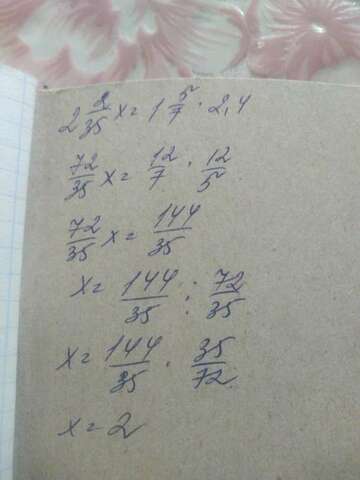 2 2/35 x = 1 5/7 · 2,4
72/35 x = 12/7 · 12/5
72/35 x = 144/35
x = 144/35 : 72/35
x = 144/35 · 35/72
x = 2